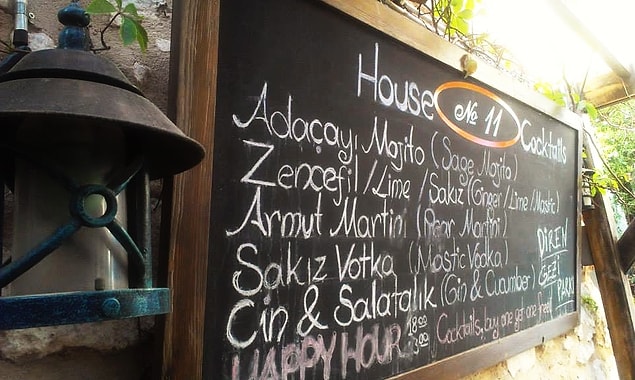 House № 11 Cocktails
Adaçayı Mojito (Sage Mojito)
Zencefil / Lime / Sakız (Ginger / Lime / Mastic)
Armut Martini (Pear Martini)
Sakız Votka (Mastic Vodka)
Cin & Salatalık (Gin & Cucumber)
DİREN
GEZİ
PARKI
HAPPY HOUR 18:00 Cocktails, buy one get one free!